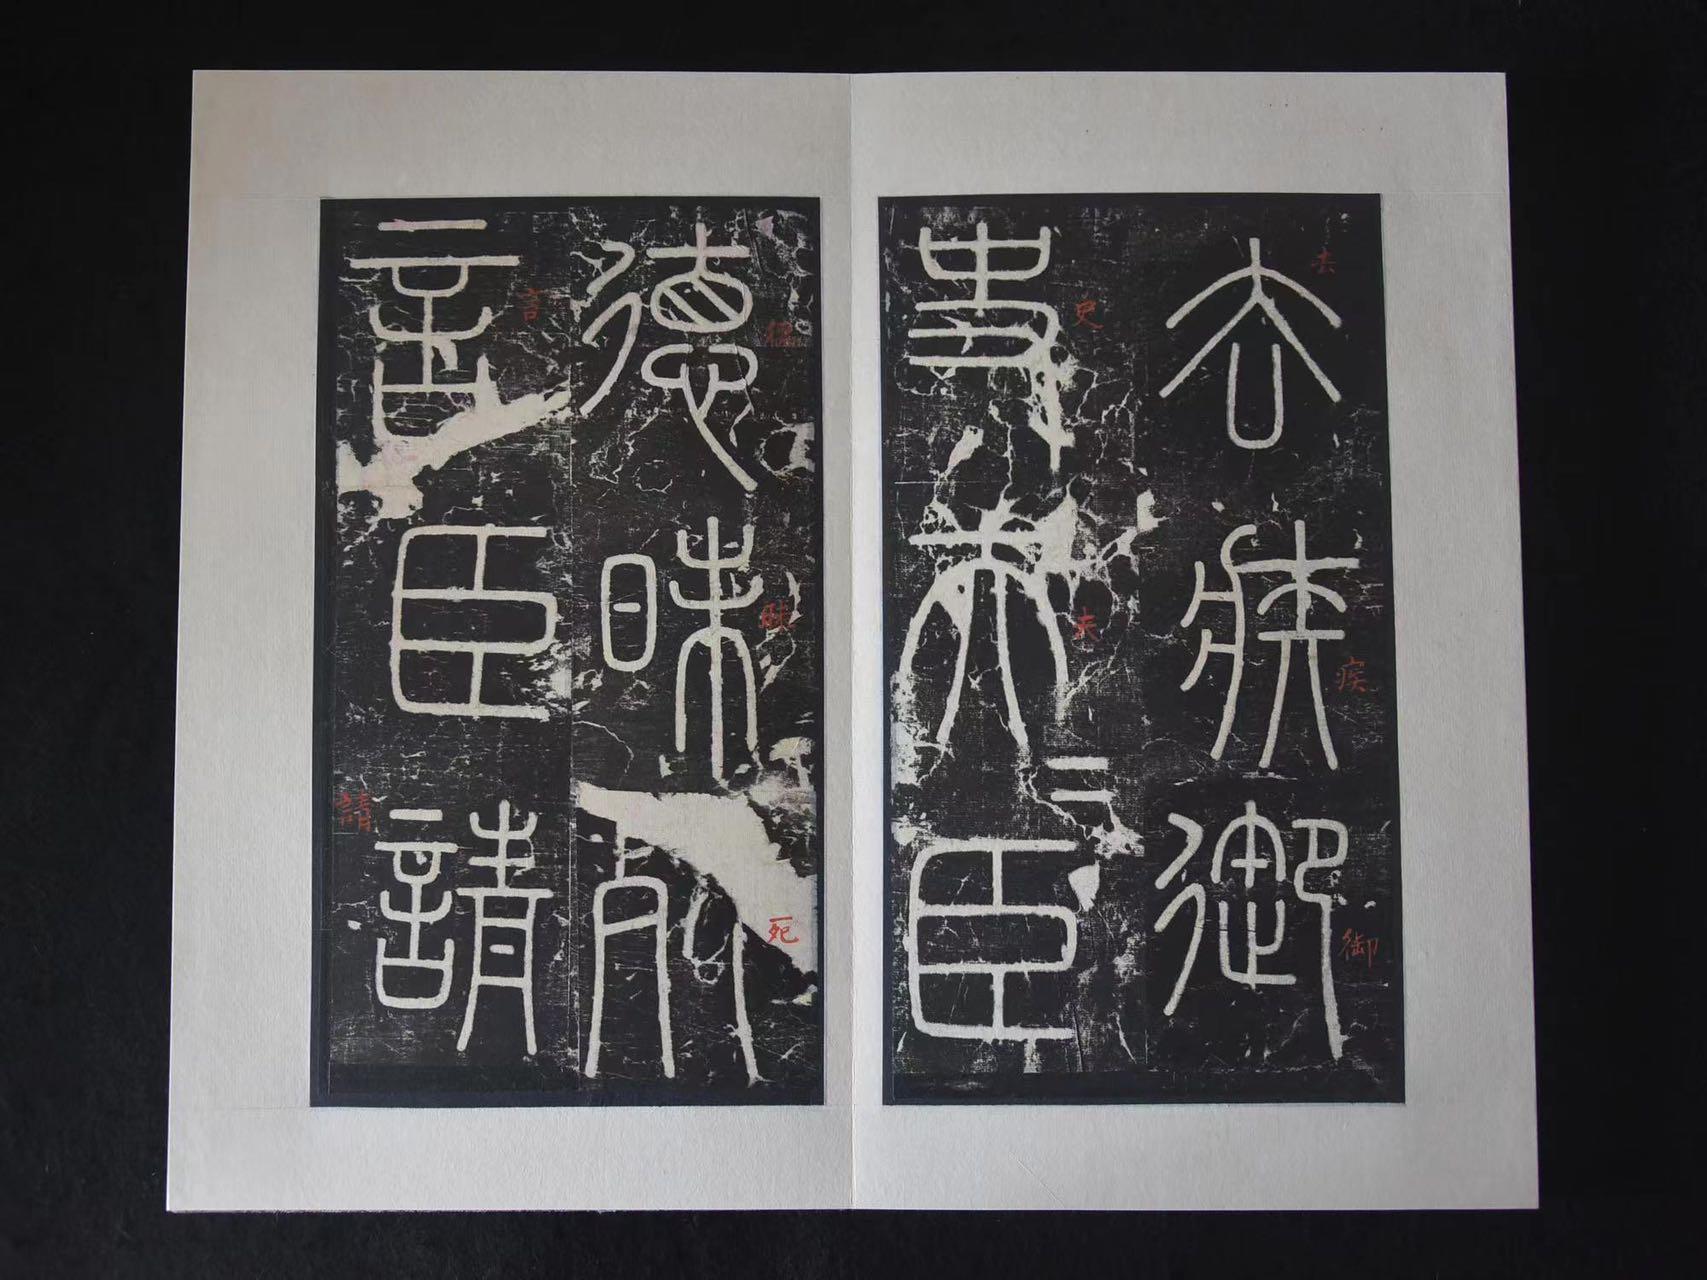 去疾御
史夫=臣
德昧死
言臣請
去
疾
御
史
夫
德
昧
死
言
請